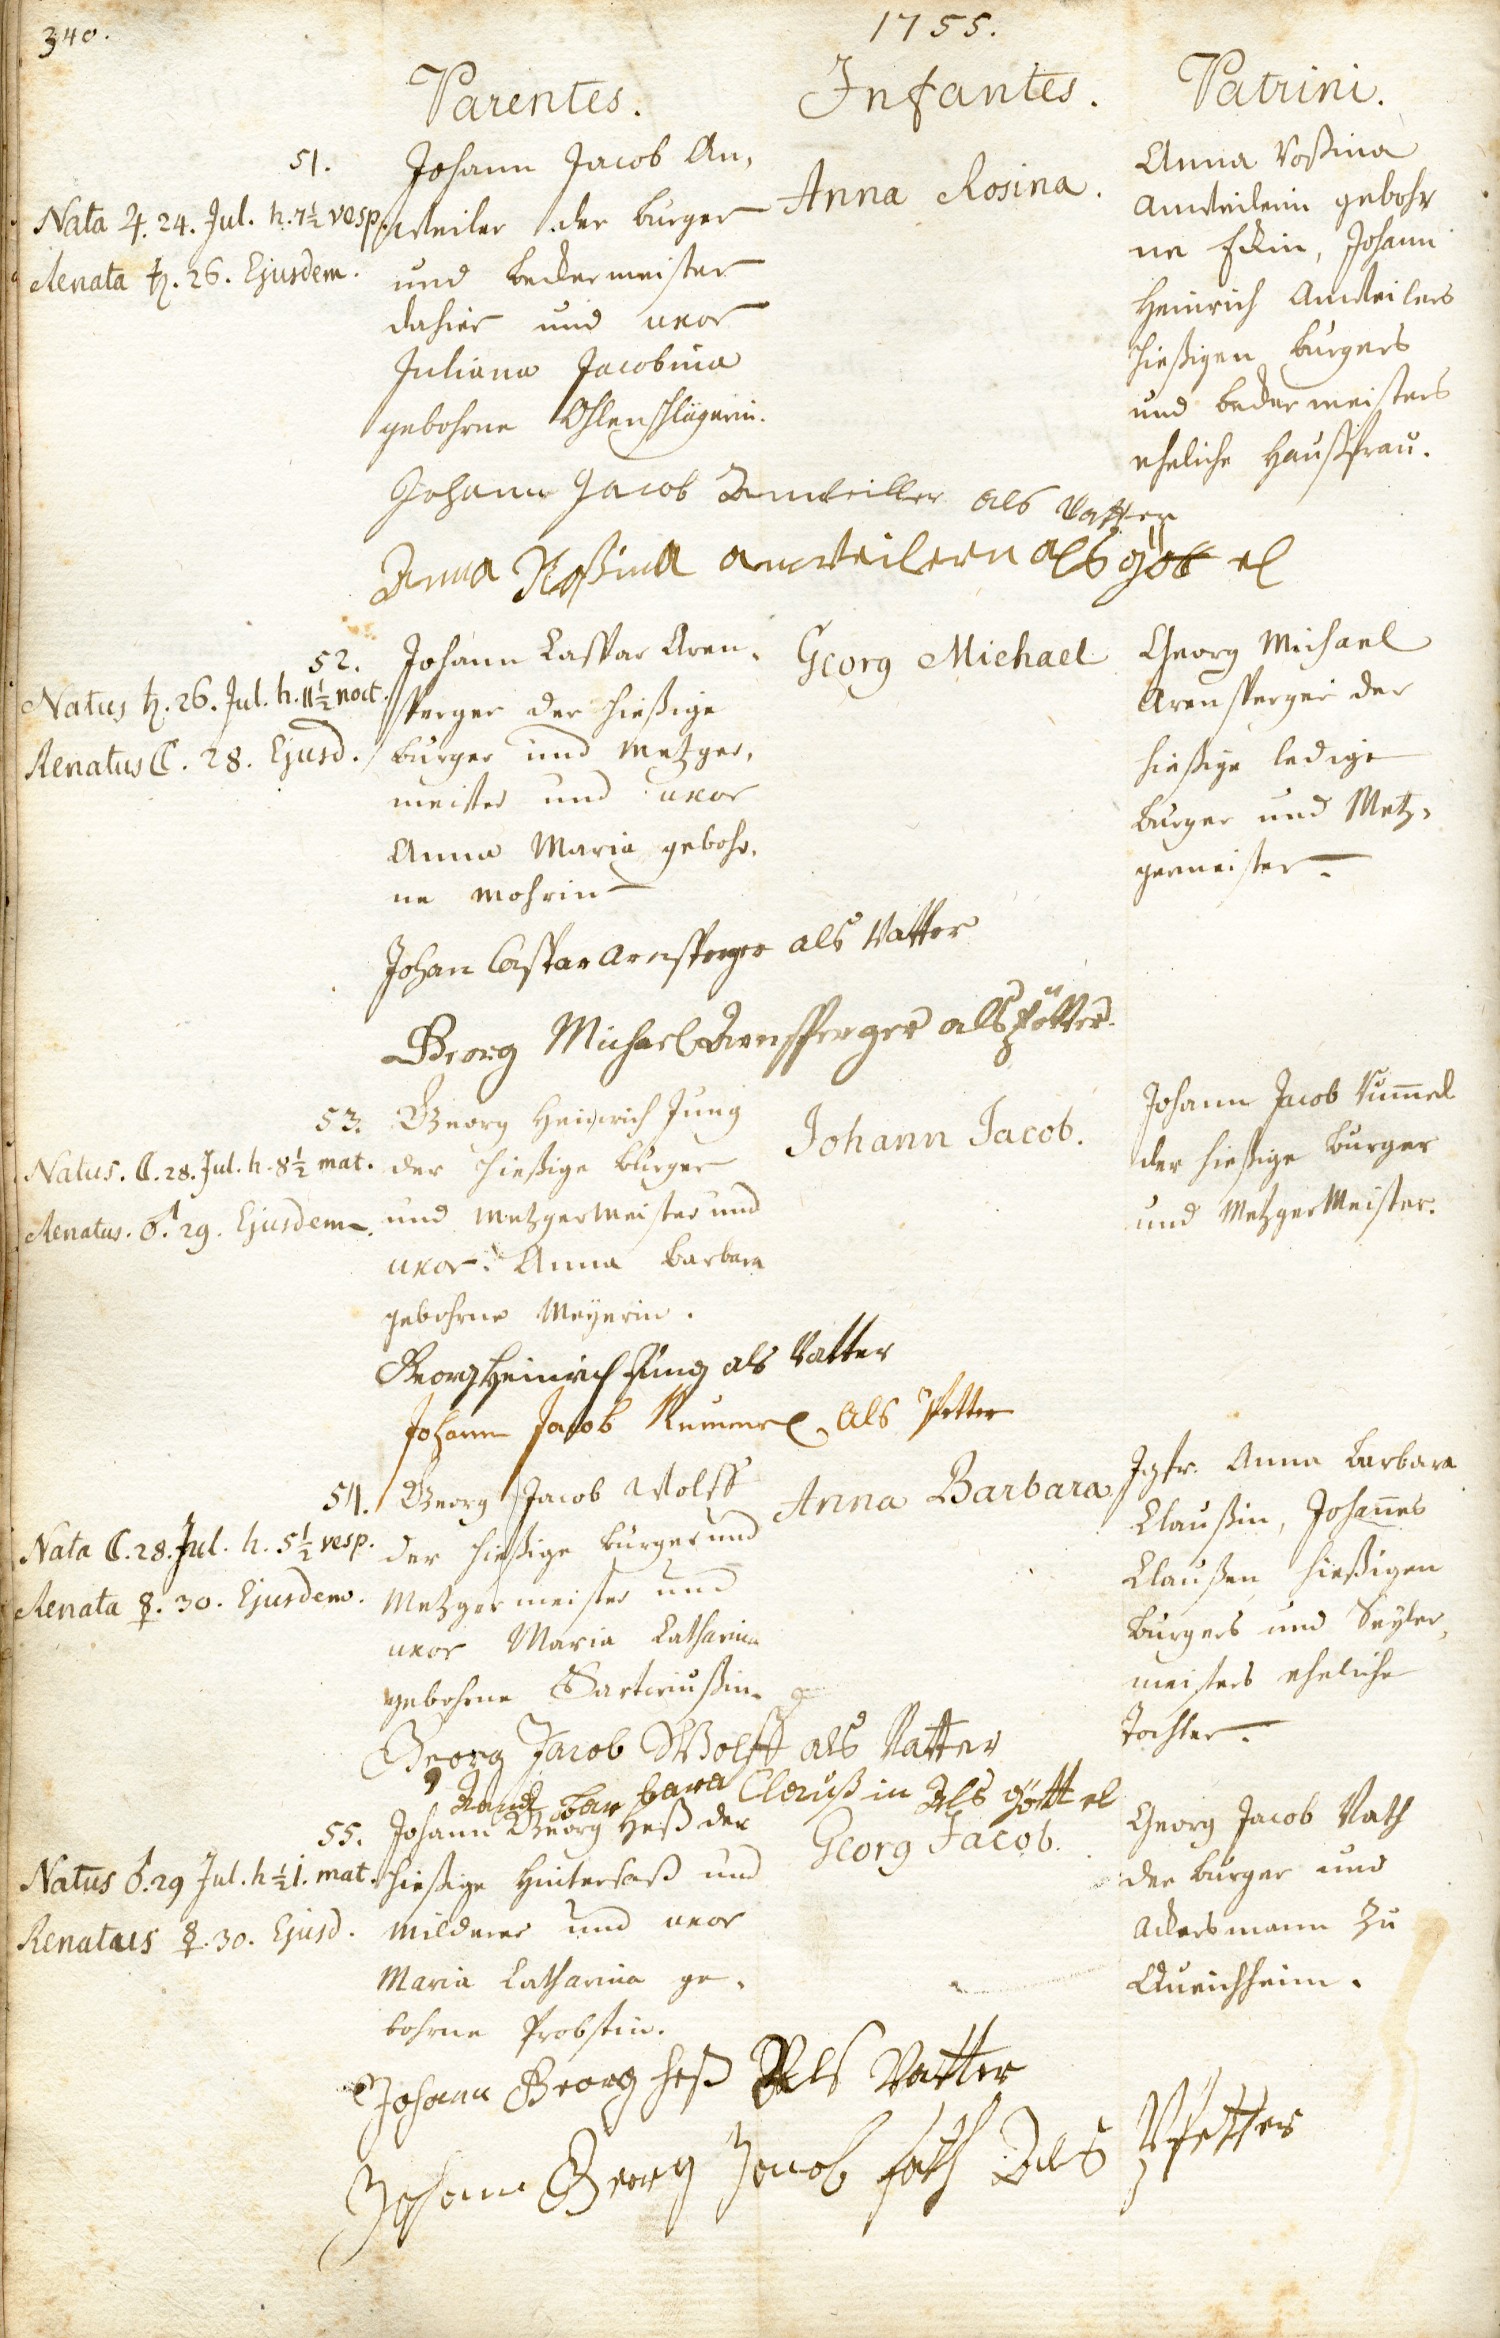 340.
1755.
Parentes.
Infantes.
Patrini.
51.
Nata ♃. 24. Jul. h. 7½ vesp.
Renata ♄. 26. Ejusdem.
Johann Jacob An,
weiler der burger
und beckermeister
dahier und uxor
Juliana Jacobina
gebohrne Ohlenschlägerin.
Anna Rosina.
Anna Rosina
Anweilerin gebohr
ne Eckin, Johann
Heinrich Anweilers
hießigen burgers
und beckermeisters
eheliche Haußfrau.
Johann Jacob Anweiller als Vatter
Anna Rosina anweilern als göttel
52.
Natus ♄. 26. Jul. h. 11½ noct.
Renatus ☾. 28. Ejusd.
Johann Caspar Aren,
sperger der hießige
burger und Metzger,
meister und uxor
Anna Maria gebohr,
ne Mohrin
Georg Michael
Georg Michael
Arensperger der
hießige ledige
burger und Metz,
germeister.
Johan Caspar arensperger als Vatter
Georg Michael Arensperger als pfötter.
53.
Natus. ☾. 28. Jul. h. 8½ mat.
Renatus. ♂. 29. Ejusdem.
Georg Heinrich Jung
der hießige burger
und Metzgermeister und
uxor. Anna Barbara
gebohrne Meyerin.
Johann Jacob.
Johann Jacob Rum̅el
der hießige burger
und MetzgerMeister.
Georg Heinrich Jung als Vatter
Johann Jacob Rummel als Petter
54.
Nata ☾. 28. Jul. h. 5½ vesp.
Renata ☿. 30. Ejusdem.
Georg Jacob Wolff
der hießige burger und
Metzgermeister und
uxor Maria Catharina
gebohrne Sartoriußin.
Anna Barbara
Jgfr. Anna Barbara
Claußin, Johan̅es
Claußen hießigen
burgers und Seyler,
meisters eheliche
Tochter.
Georg Jacob Wolff als Vatter
barbara Claußin Als göttel
55.
Natus ♂. 29 Jul. h ½ 1. mat.
Renatus ☿. 30. Ejusd.
Johann Georg Heß der
hießige Hintersaß und
Maria Catharina ge,
bohrne Probstin.
Georg Jacob.
Georg Jacob Rath
der burger und
Ackersmann zu
Queichheim.
Johann Georg heß Als Vatter
Johann Georg Jacob Als Pfetter